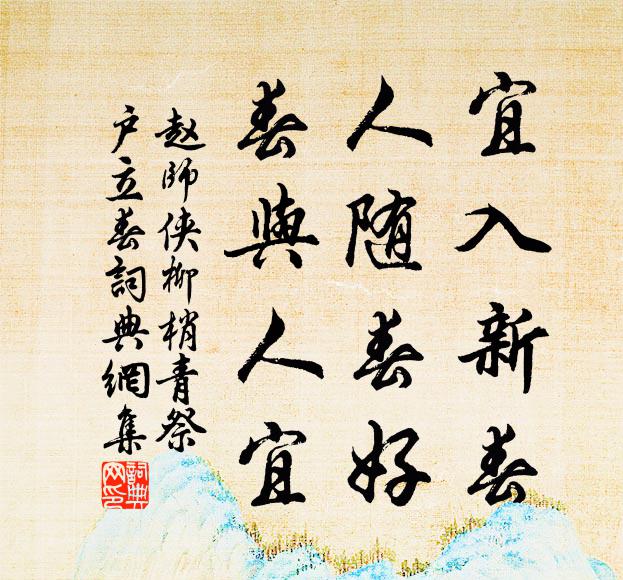 宜入新春
人随春好
春與人宜
赵師侠柳梢青祭
户立春詞典網集
詞典网印